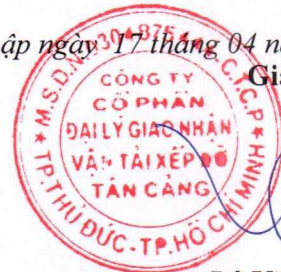 ập ngày 17 tháng 04 n
Gi
M.S.D.N:030487
C.T.C.P
CÔNG TY
CỔ PHẦN
ĐẠI LÝ GIAO NHẬN
VẬN TẢI XẾP DỠ
TÂN CẢNG
TP.THỦ ĐỨC-TP.HỒ CHÍ MINH